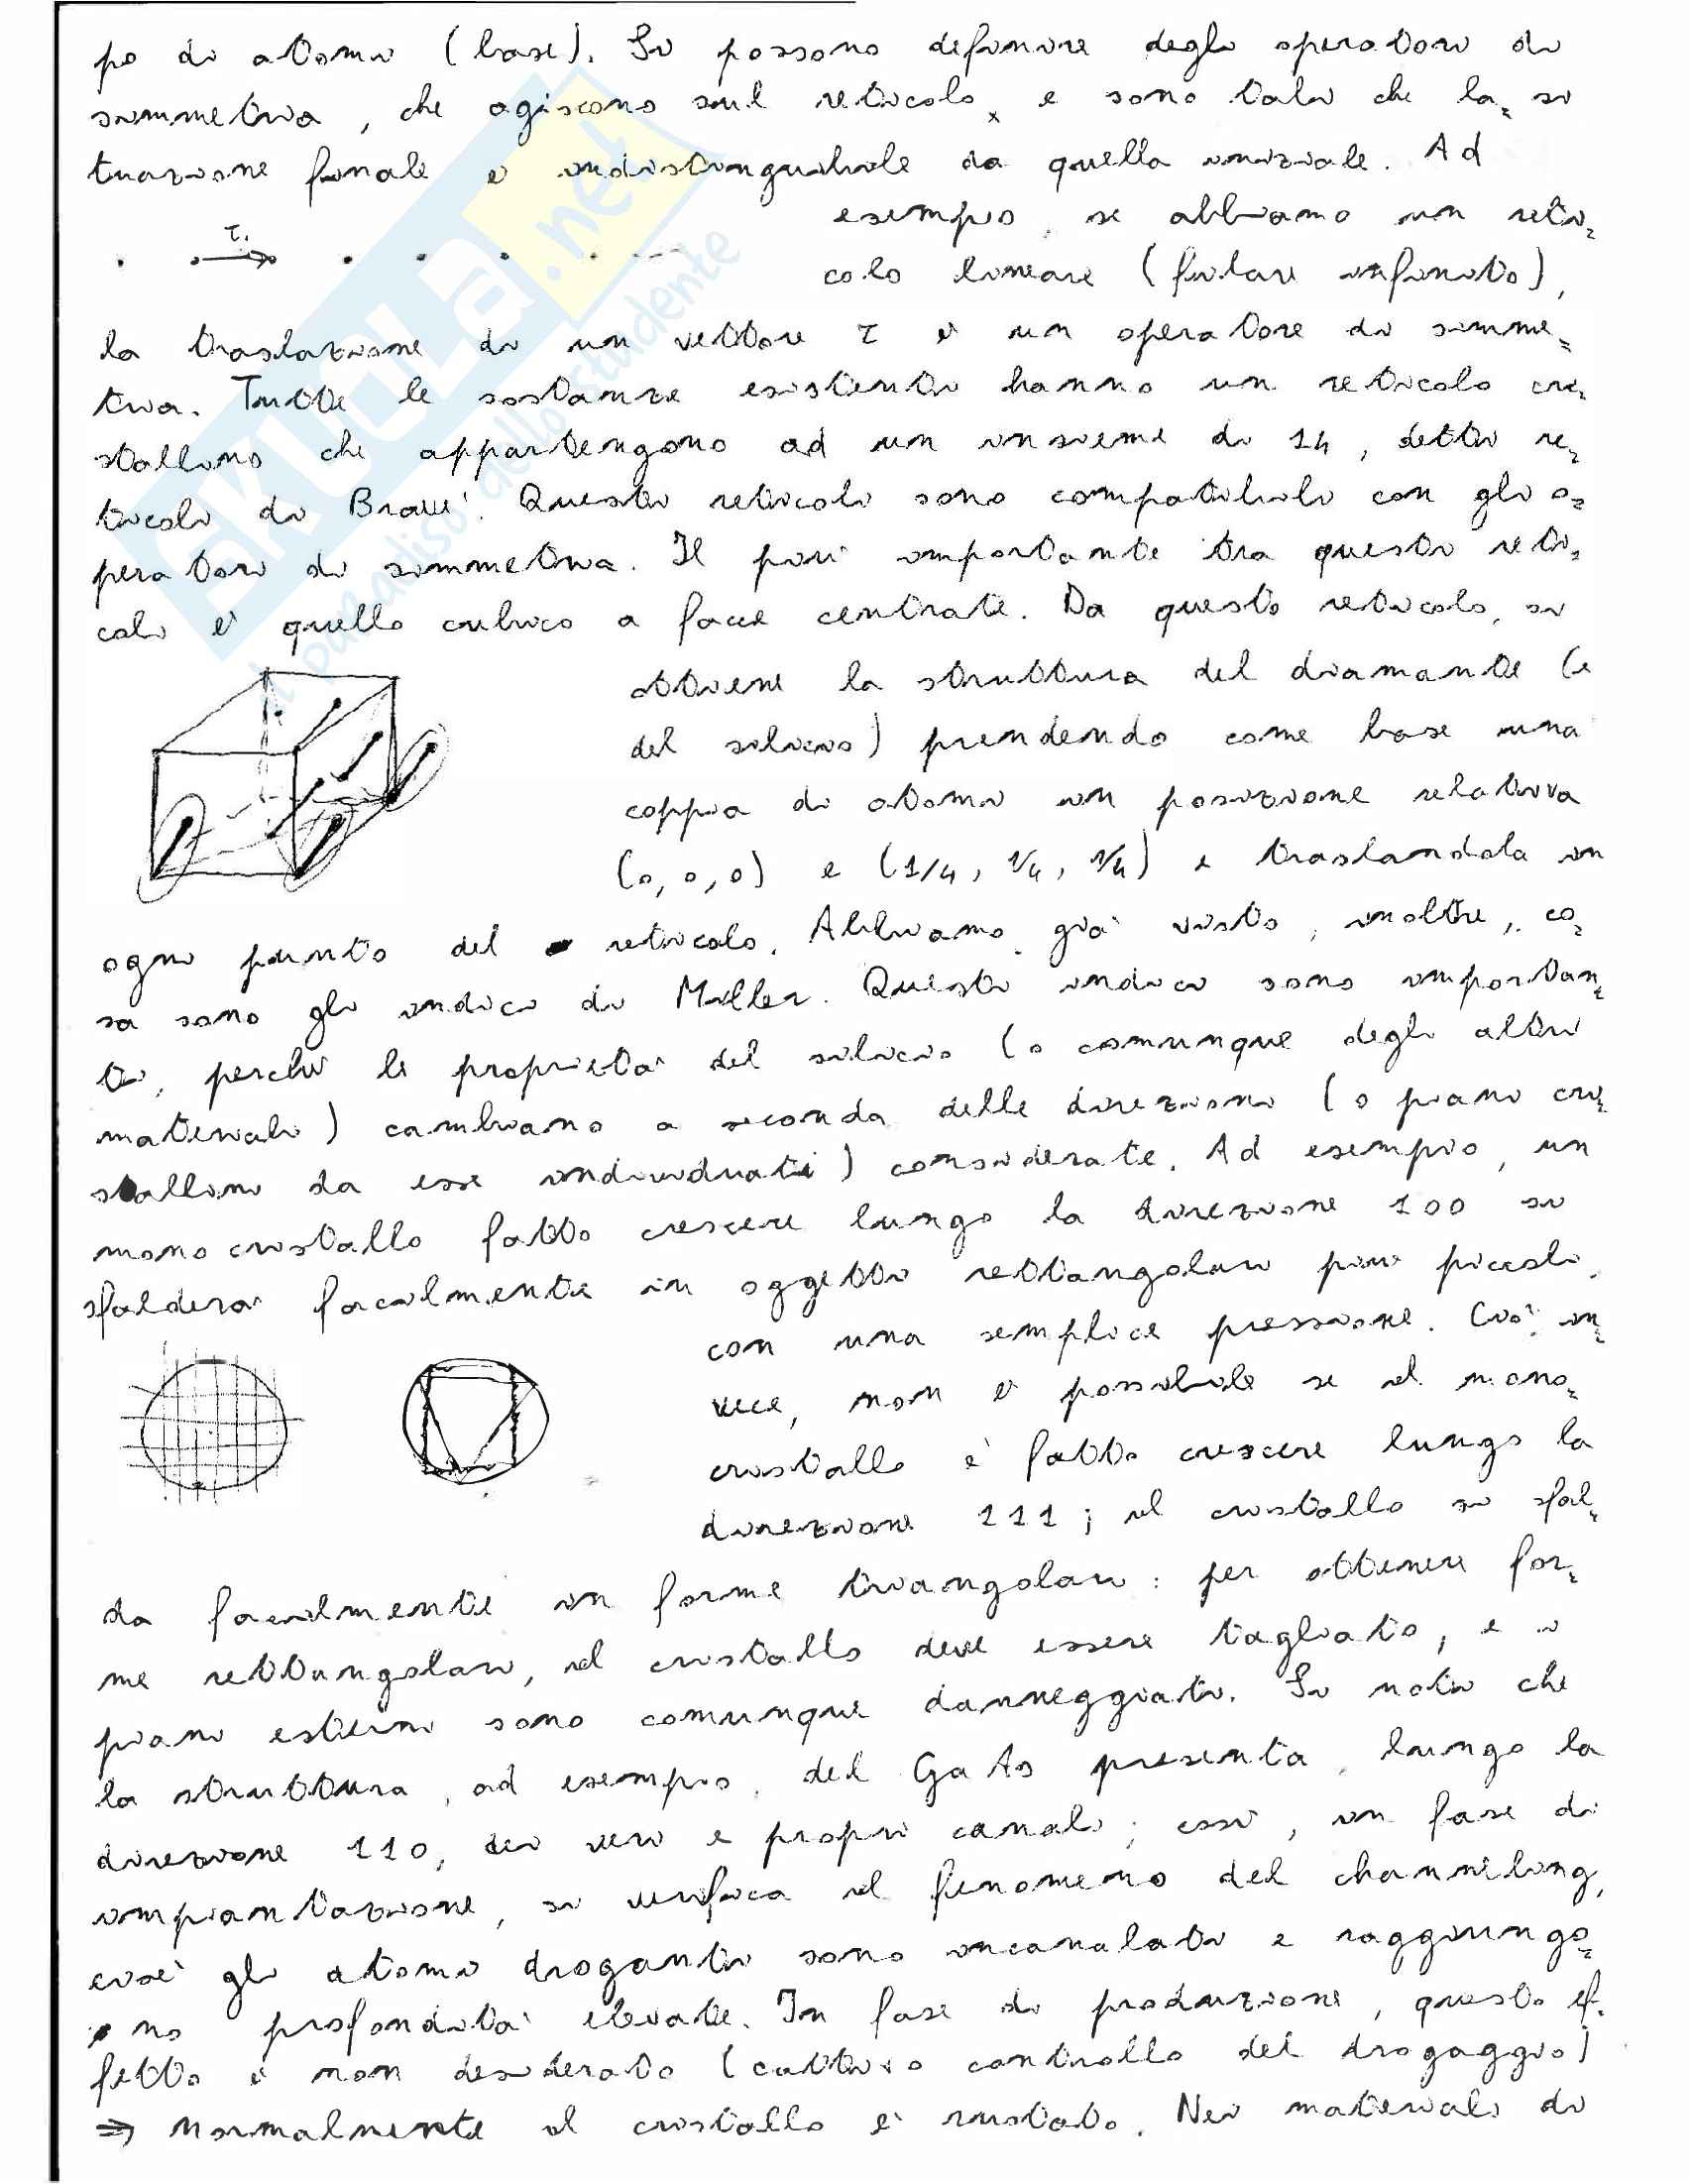 po di atomi (base). Si possono definire degli operatori di
simmetria, che agiscono sul reticolo, e sono tali che la si
tuazione finale è indistinguibile da quella iniziale. Ad
esempio, se abbiamo un reti=
τ.
colo lineare (filare infinito),
la traslazione di un vettore τ è un operatore di simme=
tria. Tutte le sostanze esistenti hanno un reticolo cri=
stallino che appartengono ad un insieme di 14, detti re=
ticoli di Bravé. Questi reticoli sono compatibili con gli o=
peratori di simmetria. Il più importante tra questi reti=
coli è quello cubico a facce centrate. Da questo reticolo, si
ottiene la struttura del diamante (e
del silicio) prendendo come base una
coppia di atomi in posizione relativa
(0, 0, 0) e (1/4, 1/4, 1/4) e traslandola in
ogni punto del reticolo. Abbiamo già visto, inoltre, co=
sa sono gli indici di Miller. Questi indici sono importan=
ti, perché le proprietà del silicio (o comunque degli altri
materiali) cambiano a seconda delle direzioni (o piani cri=
stallini da esse individuati) considerate. Ad esempio, un
monocristallo fatto crescere lungo la direzione 100 si
sfalderà facilmente in oggetti rettangolari più piccoli,
con una semplice pressione. Ciò, in=
vece, non è possibile se il mono=
cristallo è fatto crescere lungo la
direzione 111; il cristallo si sfal=
da facilmente in forme triangolari: per ottenere for=
me rettangolari, il cristallo deve essere tagliato, e i
piani esterni sono comunque danneggiati. Si noti che
la struttura, ad esempio, del GaAs presenta, lungo la
direzione 110, dei veri e propri canali; così, in fase di
impiantazione, si verifica il fenomeno del channeling,
cioè gli atomi droganti sono incanalati e raggiungo=
no profondità elevate. In fase di produzione, questo ef=
fetto è non desiderato (cattivo controllo del drogaggio)
⇒ Normalmente il cristallo è ruotato. Nei materiali di
SKUOLA.net
il paradiso dello studente